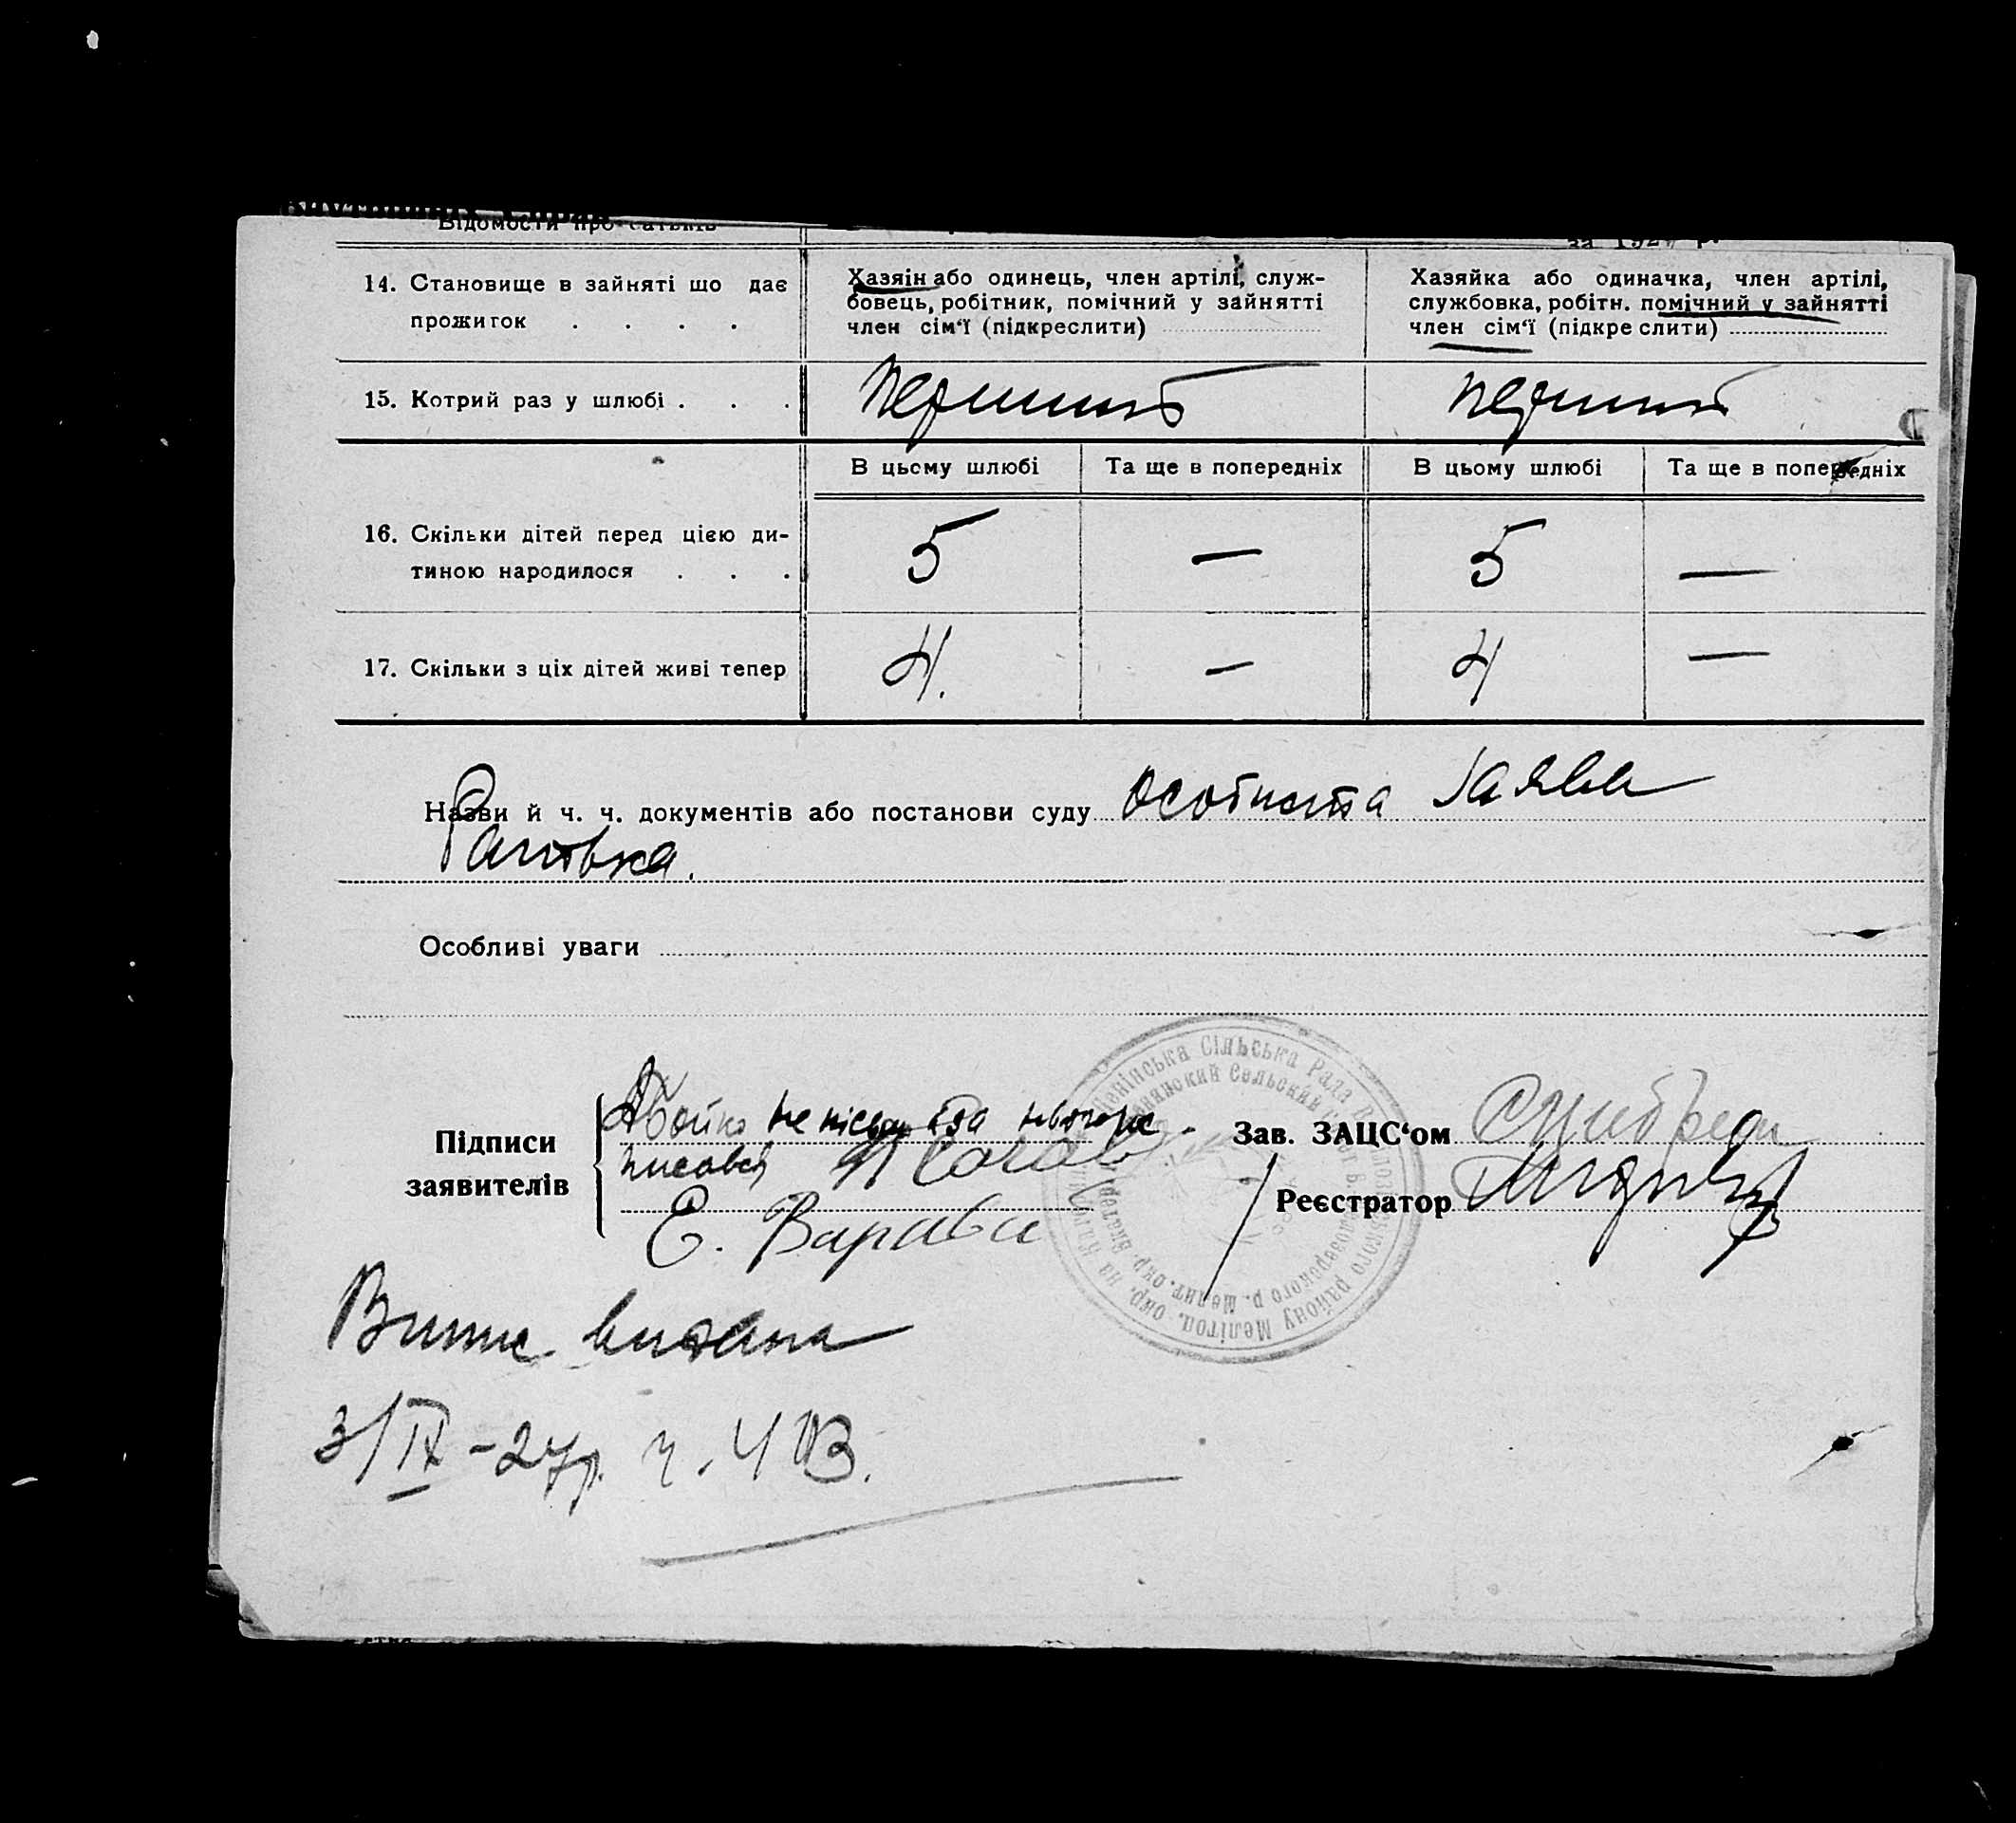 Відомости про батьків
за 1927 р.
14. Становище в зайняті що дає
прожиток . . . .
Хазяін або одинець, член артілі, служ-
бовець, робітник, помічний у зайнятті
член сім‘ї (підкреслити)
Хазяйка або одиначка, член артілі,
службовка, робітн. помічний у зайнятті
член сім‘ї (підкреслити)
15. Котрий раз у шлюбі . . .
перший
перший
В цьому шлюбі
Та ще в попередніх
В цьому шлюбі
Та ще в попередніх
16. Скільки дітей перед цією ди-
тиною народилося . . .
5
—
5
—
17. Скільки з ціх дітей живі тепер
4.
—
4
—
Назви й ч. ч. документів або постанови суду особиста заява
Особливі уваги
Підписи
заявителів
не за
Е. Варава
Зав. ЗАЦС‘ом
Реєстратор
Сільська Рада району Мелітоп. окр. на
Сельский р. Мелит. окр. Екатер.
Випис видана
3/IX-27р. ч. 403.